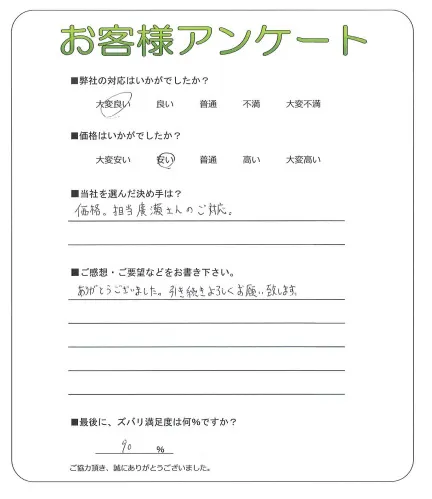 お客様アンケート
■弊社の対応はいかがでしたか？
大変良い 良い 普通 不満 大変不満
■価格はいかがでしたか？
大変安い 安い 普通 高い 大変高い
■当社を選んだ決め手は？
価格。担当廣瀬さんのご対応。
■ご感想・ご要望などをお書き下さい。
ありがとうございました。引き続きよろしくお願い致します。
■最後に、ズバリ満足度は何%ですか？
90 %
ご協力頂き、誠にありがとうございました。